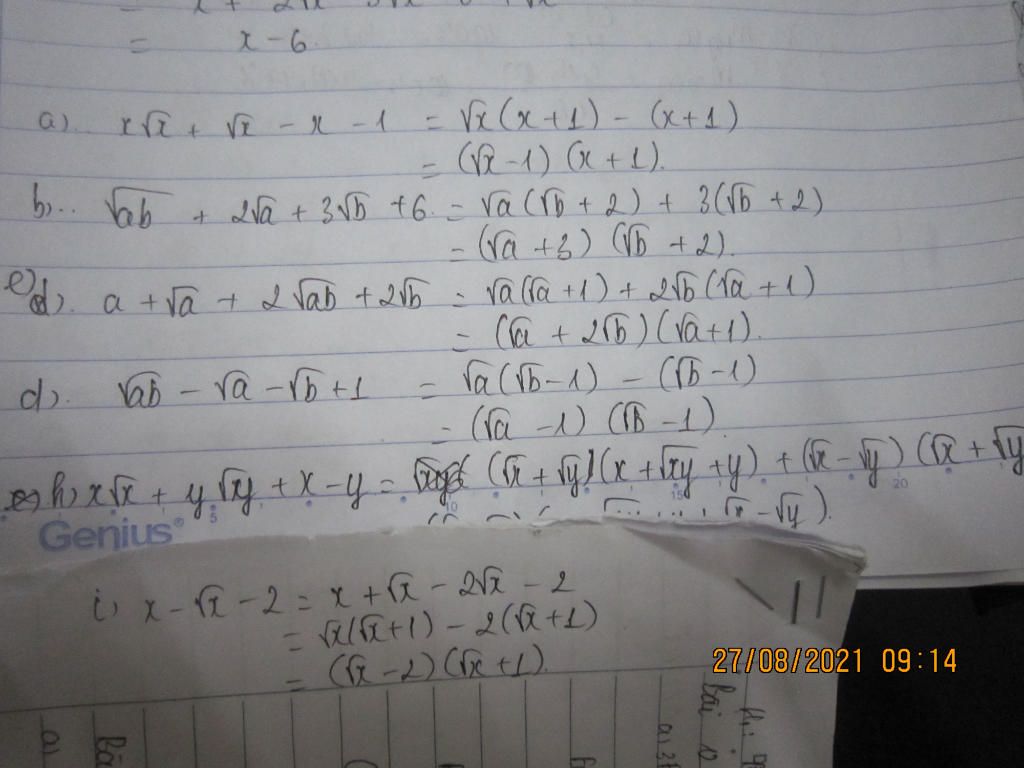 = x - 6.
a). x√x + √x - x - 1 = √x(x+1) - (x+1)
= (√x - 1)(x+1).
b).. √ab + 2√a + 3√b + 6. = √a(√b + 2) + 3(√b + 2)
= (√a + 3)(√b + 2).
e) d). a + √a + 2√ab + 2√b = √a(√a + 1) + 2√b(√a + 1)
= (√a + 2√b)(√a + 1).
d). √ab - √a - √b + 1 = √a(√b - 1) - (√b - 1)
= (√a - 1)(√b - 1)
h) x√x + y√xy + x - y = (√x + √y)(x + √xy + y) + (√x - √y)(√x + √y
√x - √y).
5 10 15 20
Genius®
i) x - √x - 2 = x + √x - 2√x - 2
= √x(√x+1) - 2(√x+1)
= (√x - 2)(√x + 1).
27/08/2021 09:14